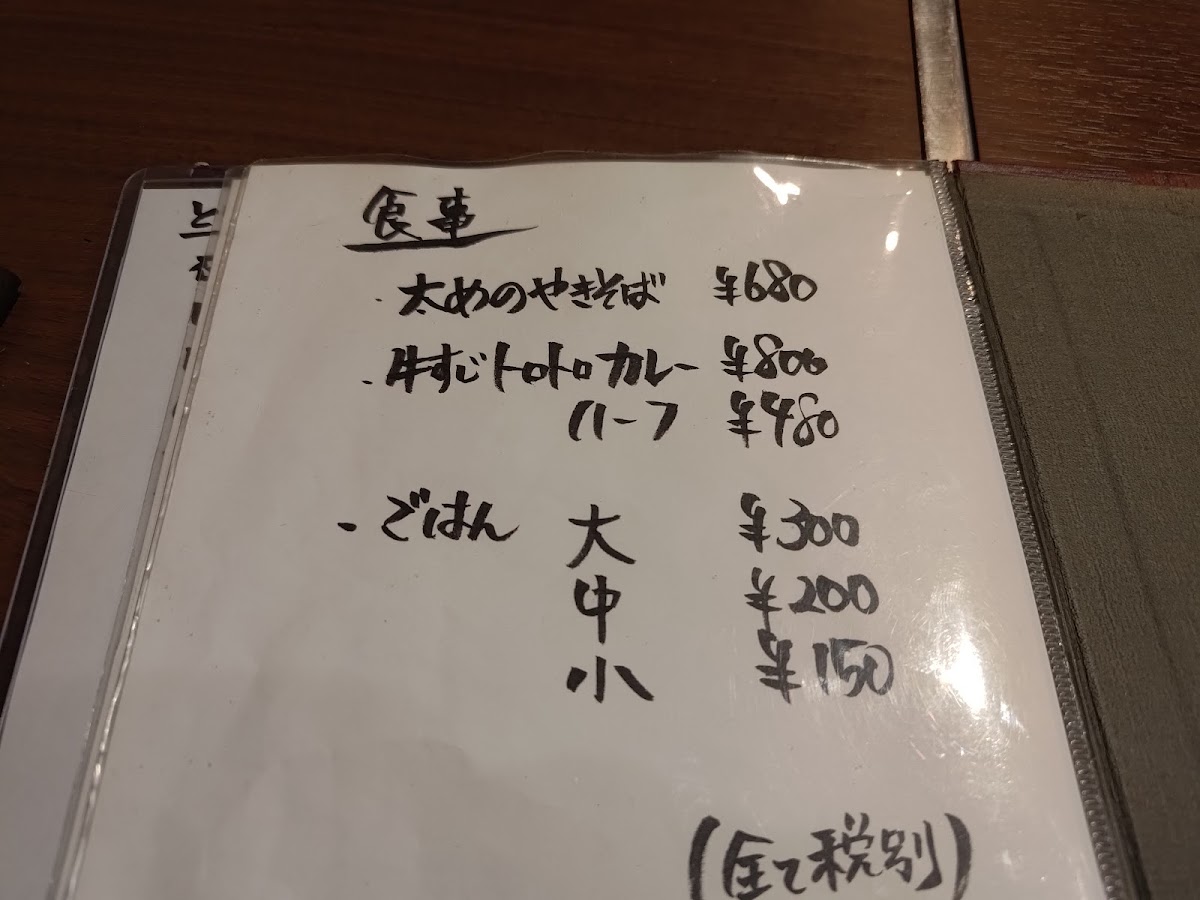 食事
・太めのやきそば ¥680
・牛すじトロトロカレー ¥800
ハーフ ¥480
・ごはん 大 ¥300
中 ¥200
小 ¥150
(全て税別)
と